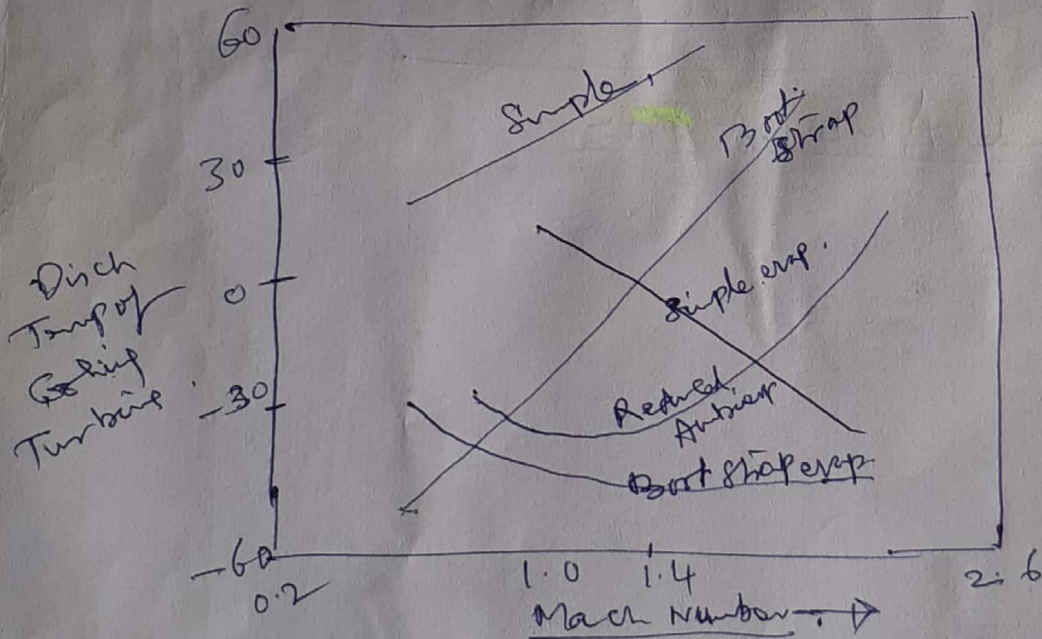 60
30
0
-30
-60
Disch
Temp of
Cooling
Turbine
Simple
Boot
Strap
Simple evap.
Reduced
Ambien
Boot strap evap
0.2
1.0
1.4
2.6
Mach Number